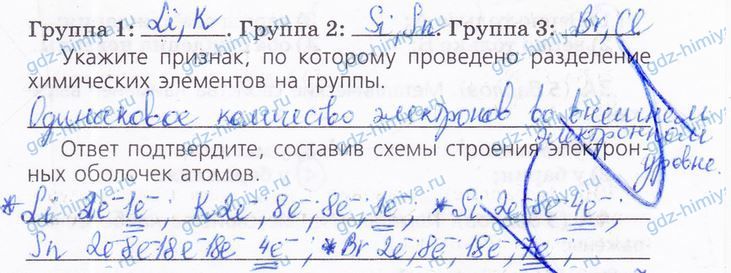 Группа 1: Li, K. Группа 2: Si, Sn. Группа 3: Br, Cl.
Укажите признак, по которому проведено разделение
химических элементов на группы.
Одинаковое количество электронов во внешнем
электронном
уровне.
Ответ подтвердите, составив схемы строения электрон-
ных оболочек атомов.
* Li 2e⁻1e⁻; K 2e⁻, 8e⁻, 8e⁻, 1e⁻; * Si 2e⁻8e⁻4e⁻;
Sn 2e⁻8e⁻18e⁻18e⁻4e⁻; * Br 2e⁻, 8e⁻, 18e⁻, 7e⁻;
gdz-himiya.ru